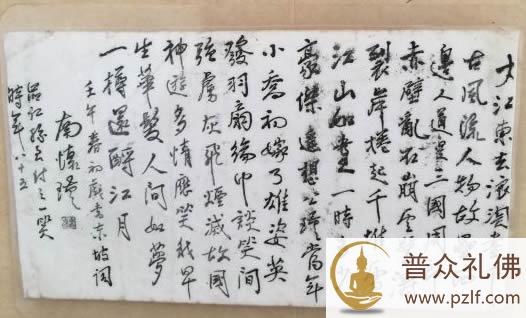 大江東去浪淘
古風流人物故壘
邊人道是三國周
赤壁亂石崩雲
裂岸捲起千堆
江山如畫一時
豪傑遙想公瑾當年
小喬初嫁了雄姿英
發羽扇綸巾談笑間
強虜灰飛煙滅故國
神遊多情應笑我早
生華髮人間如夢
一樽還酹江月
壬午春初戲書東坡詞
南懷瑾
一笑
時年八十五
普众礼佛
www.pzlf.com